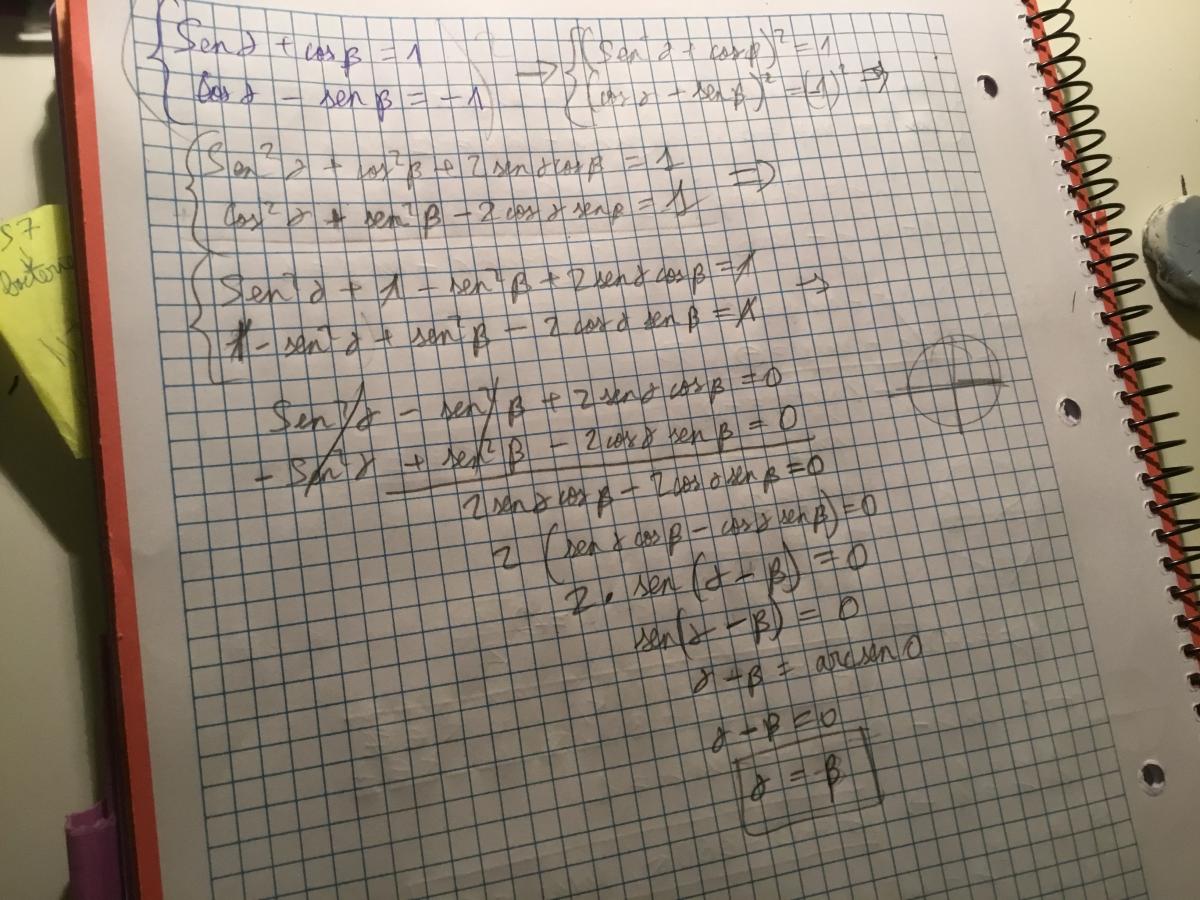 { Sen γ + cos β = 1 → { (Sen γ + cos β)² = 1
Cos γ - sen β = -1 (cos γ - sen β)² = (-1)² ⇒
{ Sen² γ + cos² β + 2 sen γ cos β = 1 ⇒
Cos² γ + sen² β - 2 cos γ sen β = 1
{ Sen² γ + 1 - sen² β + 2 sen γ cos β = 1 →
1 - sen² γ + sen² β - 2 cos γ sen β = 1
Sen² γ - sen² β + 2 sen γ cos β = 0
- Sen² γ + sen² β - 2 cos γ sen β = 0
2 sen γ cos β - 2 cos γ sen β = 0
2 (sen γ cos β - cos γ sen β) = 0
2 · sen (γ - β) = 0
sen (γ - β) = 0
γ - β = arcsen 0
γ - β = 0
γ = β
S7